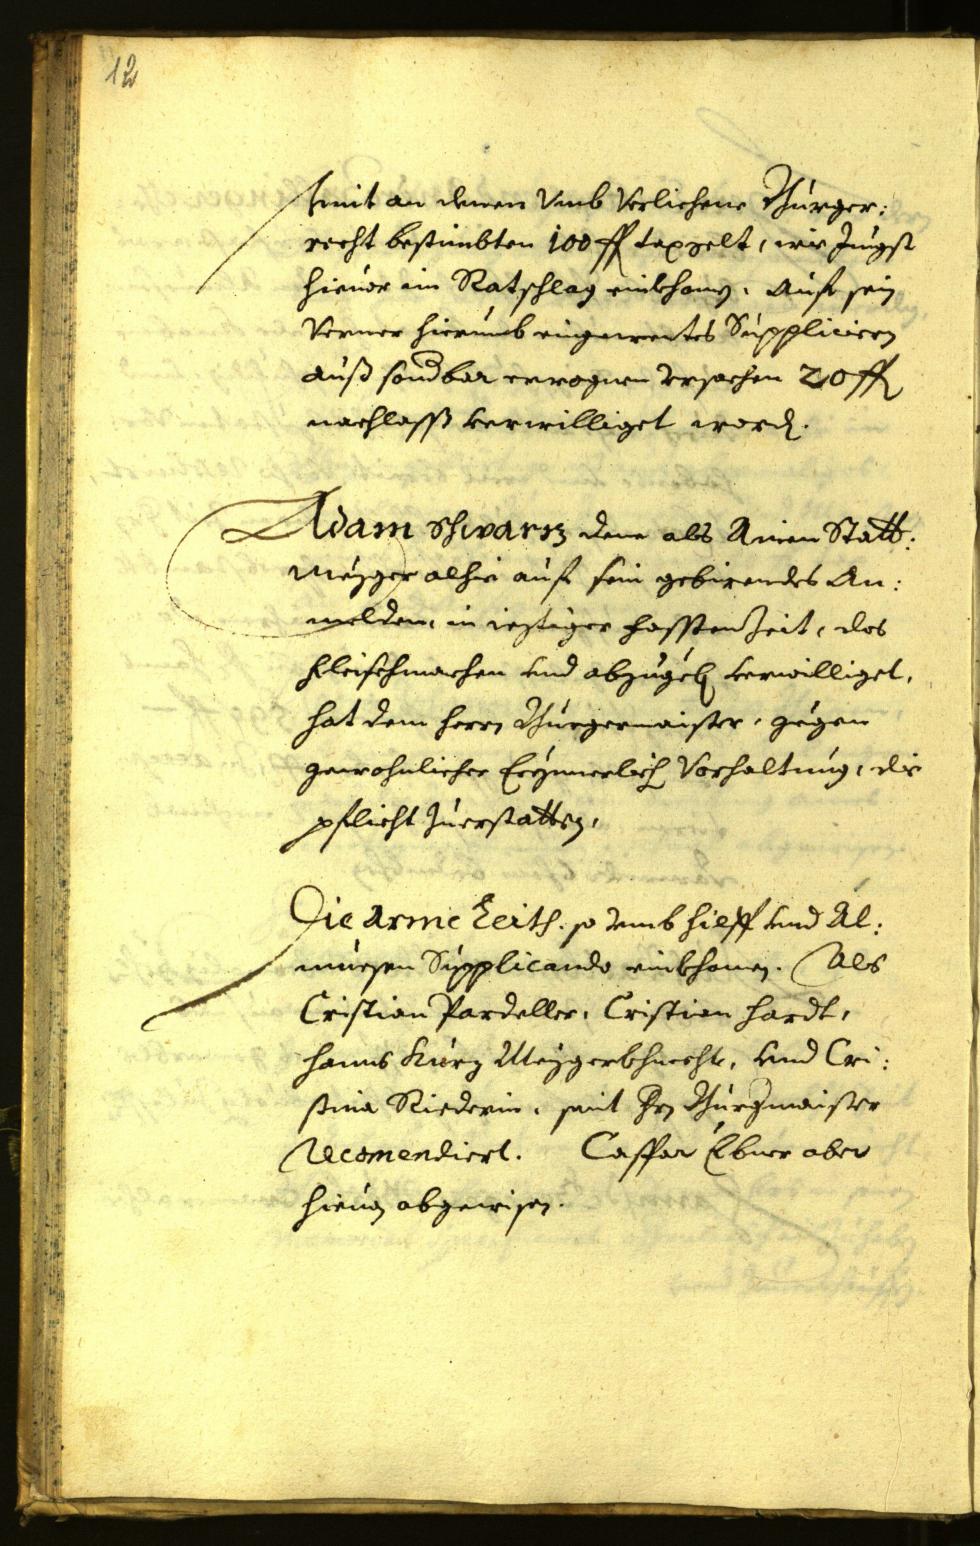 12
seint an denen Vmb Verlichene Burger:
recht bestimbten 100 ff taxgelt, wie Jungst
hieuor im Ratschlag einkhomen, Auf sein
Verner hierumb eingewentes Suppliciern
auß sondbar erwognen Vrsachen 20 ff
nachlasss verwilliget word.
Adam Schwarz deme als Ainen Statt:
Mezger alhie auf sein gebirendes An:
melden, in ieziger fasstenzeit, das
fleischmachen vnd abzugeb verwilliget,
hat dem herrn Burgermaister, gegen
gewohnlicher Vorhaltung, die
pflicht zuerstatten,
Die Arme Leith, so vmb hilff vnd Al:
muesen Supplicando einkhomen. Als
Cristian Pardeller, Cristian hardt,
hanns Kurz Mezgerkhnecht, vnd Cri:
stina Riederin, seint Hrn Burgmaister
Recomendiert. Casspar Ebner aber
hieuon abgewisen.